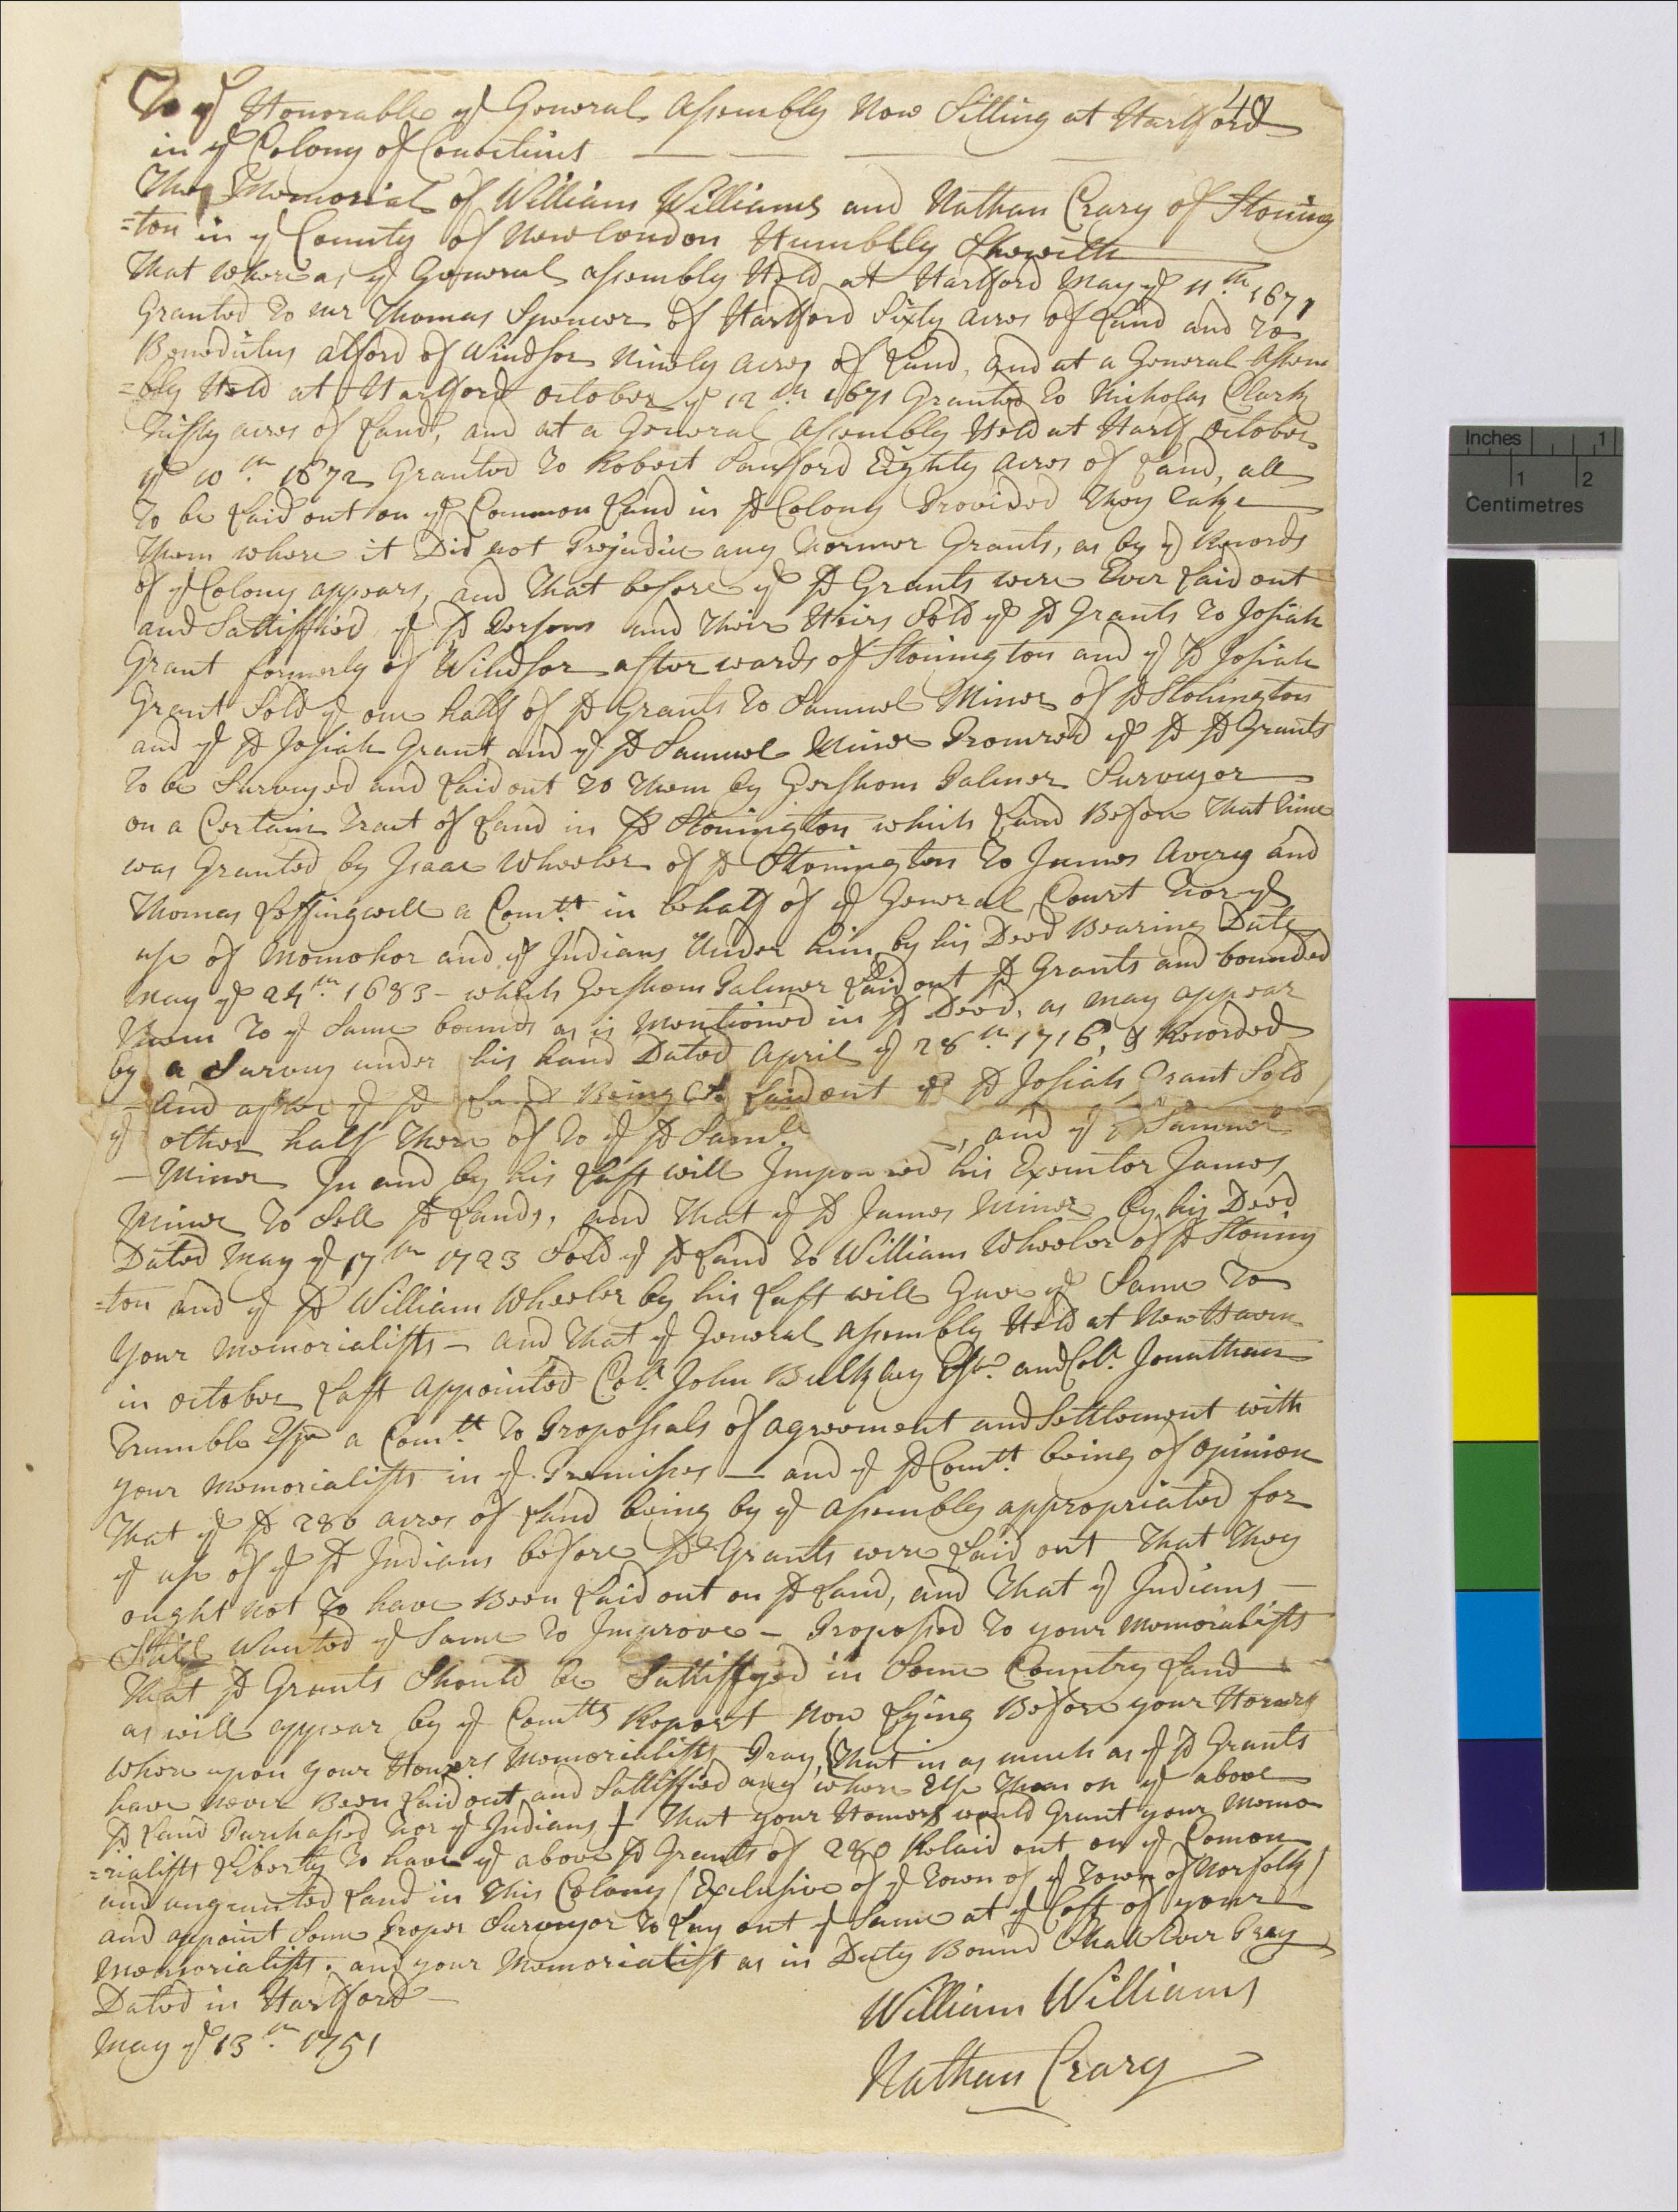 48
To ye Honorable ye General Assembly Now Sitting at Hartford
in ye Colony of Conecticut
The Memorial of William Williams and Nathan Crary of Stoning
=ton in ye County of New london Humblly Sheweth
That where as ye General assembly Held at Hartford May ye 11.th 1671
Granted To mr Thomas Spencer of Hartford Sixty acres of Land and To
Benedictus alford of Windsor Ninety acres of Land, and at a General Assem
=bly Held at Hartford october ye 12th 1671 Granted To Nicholas Clark
Fiffty acres of Land, and at a General assembly Held at Hartfd october
ye 10th 1672 Granted To Robert Sanford Eighty acres of Land, all
To be Laid out on ye Common Land in sd Colony Provided They take
Them where it Did not Prejudice any Former Grants, as by ye Records
of ye Colony appears, and That before ye sd Grants were Ever Laid out
and Sattisfied ye sd Persons and Their Heirs Sold ye sd Grants To Josiah
Grant formerly of Windsor after wards of Stonington and ye sd Josiah
Grant Sold ye one half of sd Grants To Samuel Miner of sd Stonington
and ye sd Josiah Grant and ye sd Samuel Miner Procured ye sd sd Grants
To be Surveyed and Laid out To Them by Gershom Palmer Surveyor
on a Certain Tract of Land in sd Stonington which Land Before That time
was Granted by Isaac Wheeler of sd Stonington To James Avery and
Thomas Leffingwell a Comtt in behalf of ye General Court For ye
use of Momohor and ye Indians Under him, by his Deed Bearing Date
May ye 24th 1683 - which Gershom Palmer Laid out sd Grants and bounded
Them To ye Same bounds as is Mentioned in sd Deed, as may appear
by a Survey under his hand Dated April ye 28th 1716, & Recorded
- And after ye sd Land Being So Laid out ye sd Josiah Grant Sold
ye other half There of To ye sd Samll , and ye Samuel
- Miner In and by his Last will Impowred his Executor James
Miner To Sell sd Lands, and That ye sd James Miner by his Deed
Dated May ye 17th 1723 Sold ye sd Land To William Wheeler of sd Stoning
=ton and ye sd William Wheeler by his Last will Gave ye Same To
your Memorialists - and That ye General assembly Held at New Haven
in october Last Appointed Coll John Bulkley Esqr. and Coll. Jonathan
Trumble Esqr a Comtt To Propossals of agreement and Settlement with
your Memorialists in ye Premises - and ye sd Comtt being of opinion
That ye sd 280 acres of Land being by ye assembly appropriated for
ye use of ye sd Indians before sd Grants were Laid out That They
ought not To have Been Laid out on sd Land, and That ye Indians -
Still wanted ye Same To Improve - Proposed To your Memorialists
That sd Grants Should be Sattisfyed in Some Country Land
as will appear by ye Comtts Report now Lying Before your Honors
where upon your Honors Memorialists Pray, (That in as much as ye sd Grants
have never Been Laid out and Sattisfied any where Else Than on ye above
sd Land Purchased For ye Indians) That your Honors would Grant your Memo
=rialists Liberty To have ye above sd Grants of 280 Relaid out on ye Comon
and ungranted Land in This Colony (Exclusive of ye Town of ye Town of Norfolk)
and appoint Some Proper Surveyor To Lay out ye Same at ye Cost of your
Memorialists. and your Memorialist as in Duty Bound Shall Ever Pray
Dated in Hartford -
May ye 13th 1751
William Williams
Nathan Crary
Inches 1
1 2
Centimetres